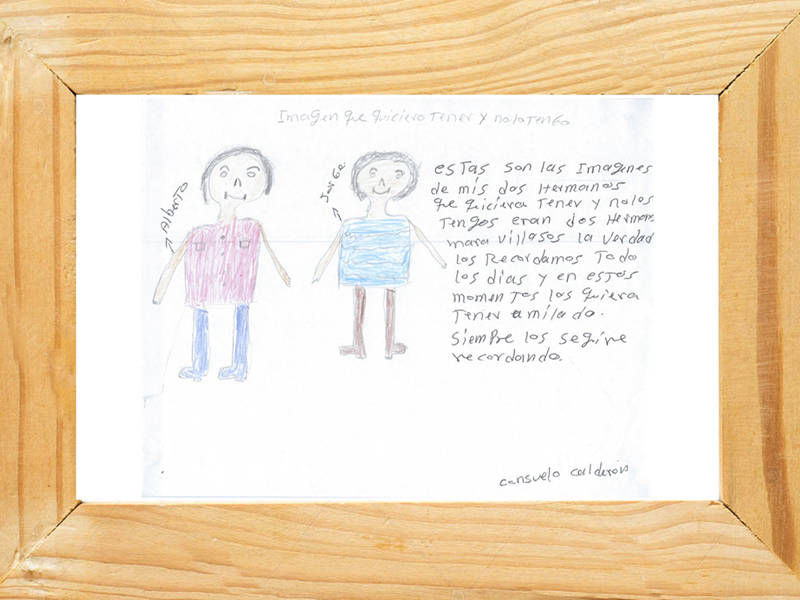 Imagen que quiciera Tener y nolo Tengo
Alberto
Jorge
esTas son las Imagenes
de mis dos Hermanos
que quiciera Tener y nolos
Tengos eran dos Herman
maravillasos la verdad
los Recordamos Todo
los dias y en estos
momenTos los quiera
Tener a mi lado.
Siempre los seguire
recordando.
consuelo calderon